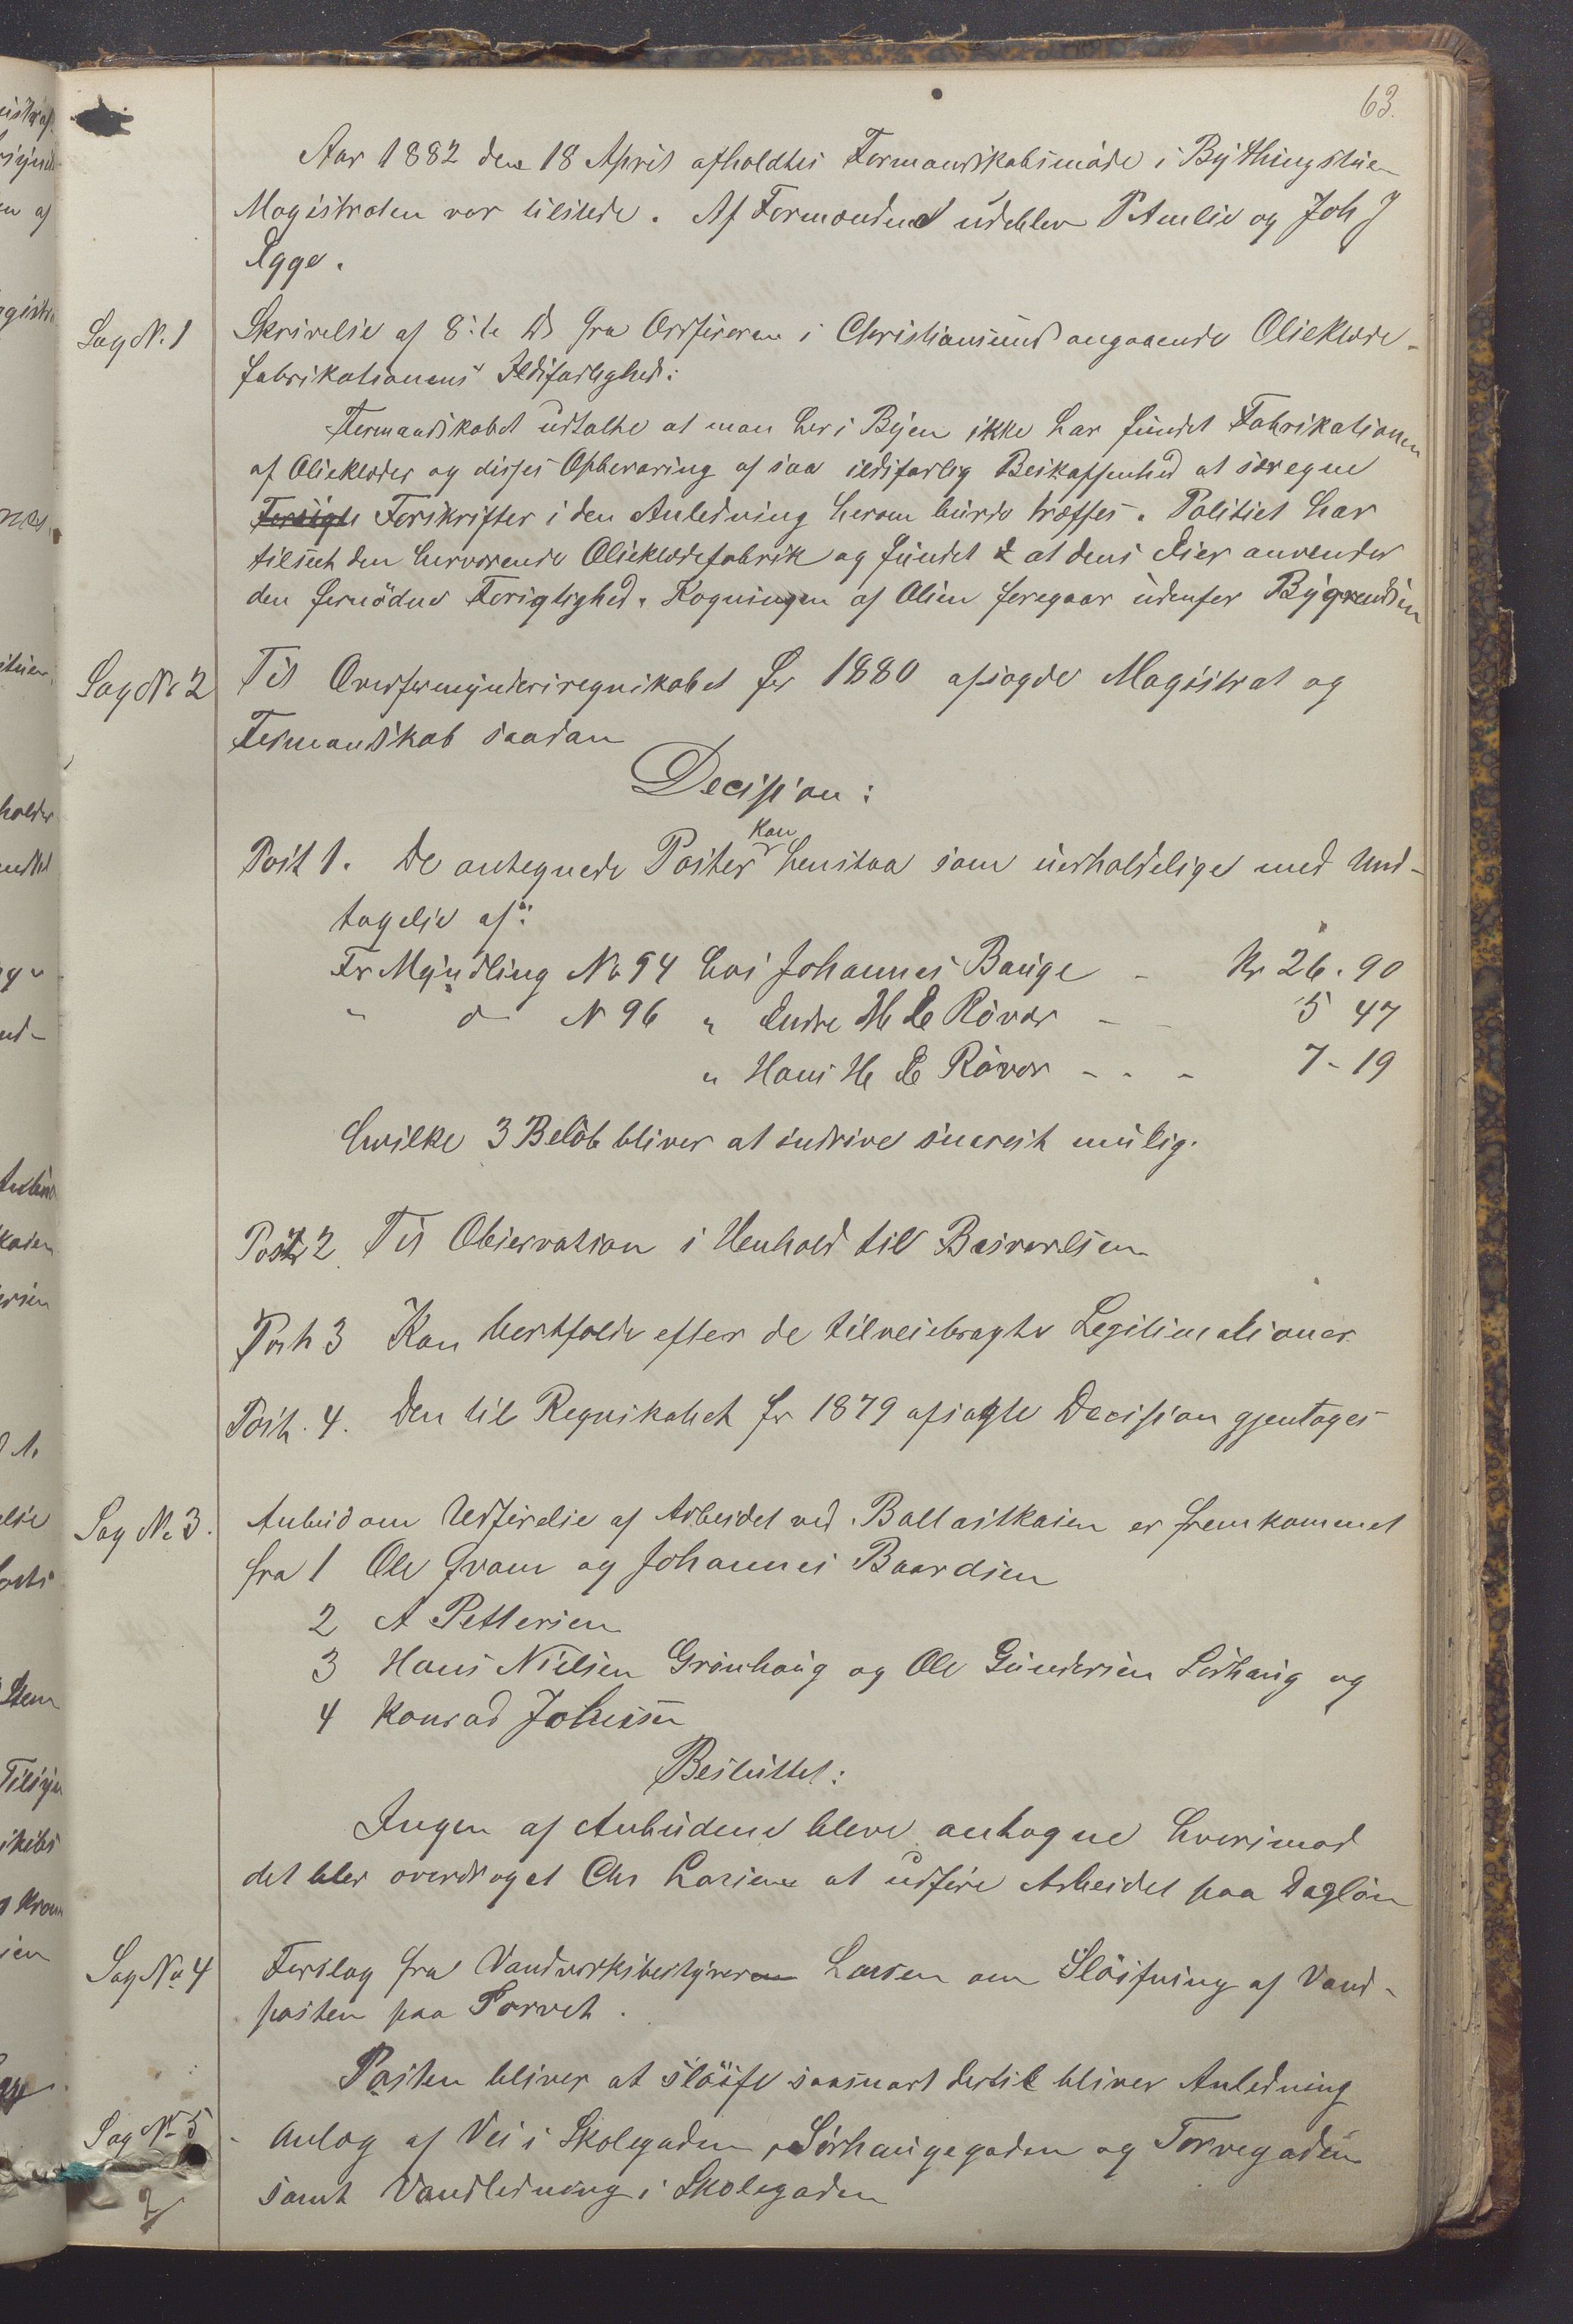 63.
Aar 1882 den 18 April afholdtes Formandskabsmøde i Bythingstuen
Magistraten var tilstede. Af Formændene udeblev P Amlie og Joh J
Egge.
Sag No. 1 Skrivelse af 8:de ds fra Ordføreren i Christiansund angaaende Olieklæde-
fabrikationens Ildsfarlighed:
Formandskabet udtalte at man her i Byen ikke har fundet Fabrikationen
af Olieklæder og disses Opbevaring af saa ildsfarlig Beskaffenhed at særegne
Forsigte Forskrifter i den Anledning herom burde træffes. Politiet har
tilseet den herværende Olieklædefabrik og fundet at dens Eier anvender
den fornødne Forsigtighed. Kogningen af Olien foregaar udenfor Bygrændsen
Sag No 2 Til Overformynderiregnskabet for 1880 afsagde Magistrat og
Formandskab saadan
Decision:
Post 1. De antegnede Poster kan henstaa som uerholdelige med Und-
tagelse af:
For Myndling No 94 hos Johannes Bauge - Kr 26.90
" do N 96 " Endre H Røvær - - 5 47
" Hans H Røvær - - - 7 - 19
hvilke 3 Beløb bliver at inddrive snarest mulig.
Post 2 Til Observation i Henhold til Besvarelsen
Post 3 Kan bortfalde efter de tilveiebragte Legitimationer.
Post. 4. Den til Regnskabet for 1879 afsagte Decision gjentages
Sag No 3. Anbud om Udførelse af Arbeidet ved Ballastkaien er fremkommet
fra 1 Ole Qvam og Johannes Baardsen
2 A Pettersen
3 Hans Nielsen Grønhaug og Ole Gundersen Sørhaug og
4 Konrad Johnsen
Besluttet:
Ingen af Anbudene bleve antagne hvorimod
det blev overdraget Chr Larsen at udføre Arbeidet paa Dagløn
Sag No 4 Forslag fra Vandværksbestyrer Larsen om Sløifning af Vand-
posten paa Torvet.
Posten bliver at sløife saasnart dertil bliver Anledning
Sag No 5 Anlæg af Vei i Skolegaden, Sørhaugegaden og Torvegaden
samt Vandledning i Skolegaden